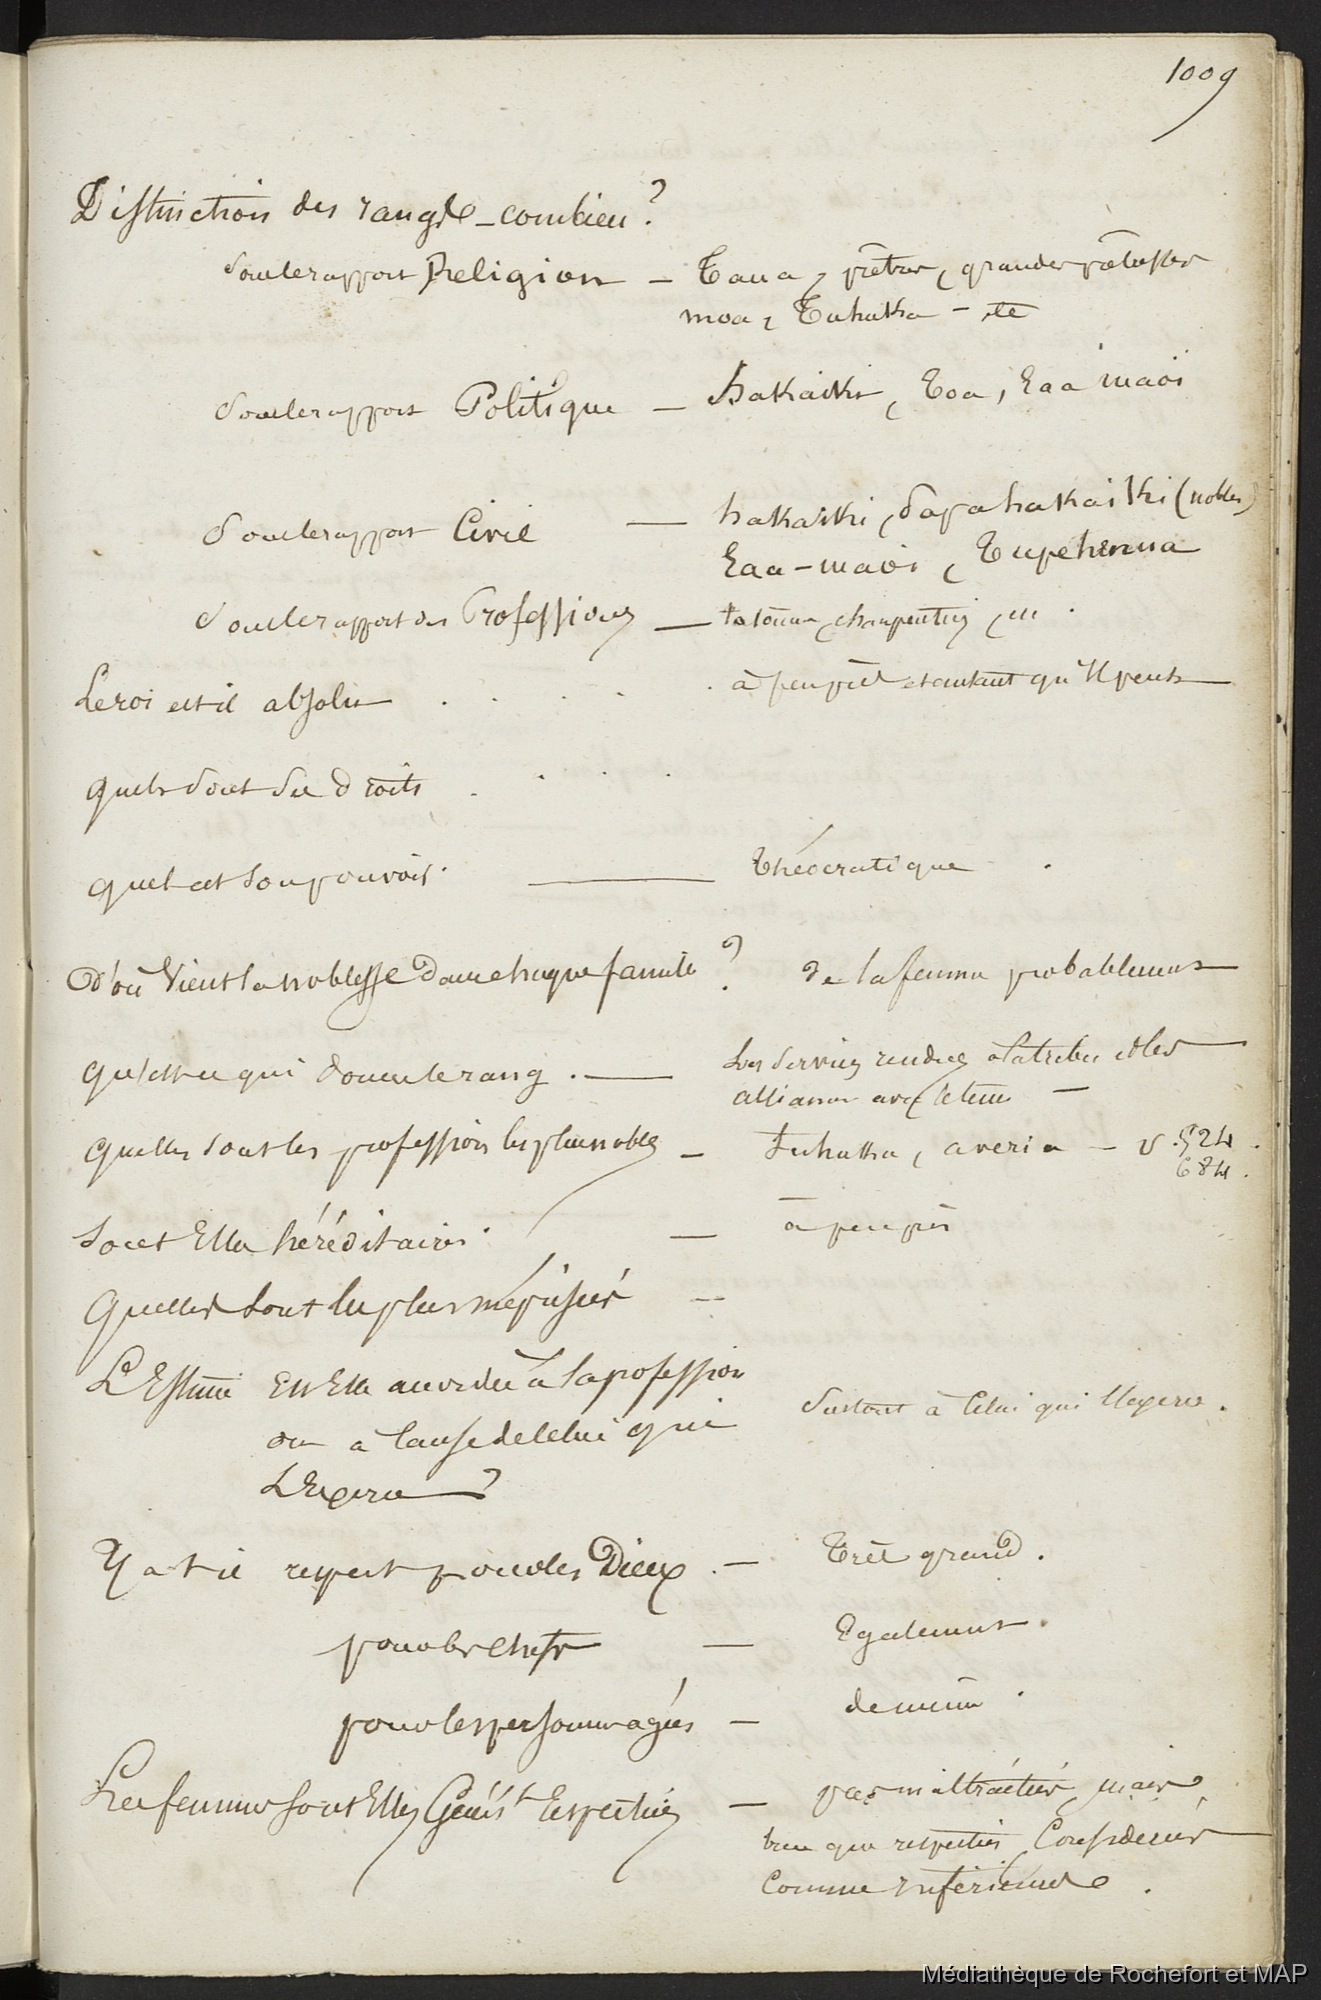 1009
Distinction des rangs - combien ?
Sous le rapport Religion - Taua, prêtres, grandes prêtresses
moa, Tuhuka - etc
Sous le rapport Politique - hakaiki, Toa, Eaa maoï
Sous le rapport Civil - hakaiki, hakaiki (nobles)
Eaa-maoï,
Sous le rapport des Professions - charpentier,
Le roi est il absolu . . . . . à peu près et autant qu'il peut
quels sont ses droits . . . .
quel est son pouvoir. - Théocratique .
D'où vient la noblesse dans chaque famille ? de la femme probablement
qu'est ce qui donne le rang . - Les services rendus à la tribu et les
alliances avec
quelles sont les professions les plus nobles - Tuhuka, - v. 524.
684.
sont Elles héréditaires. - à peu près
quelles sont les plus méprisées -
L'Estime Est Elle accordée à la profession
ou à cause de celui qui
L'Exerce ?
Surtout à celui qui l'exerce.
Y a t il respect pour les Dieux . - Très grand.
pour les chefs - Egalement.
pour les personnes agées - de même .
Les femmes sont Elles Génér.t respectées - pas maltraitées, mais
bien que respectées, Considérées
comme inférieures .
Médiathèque de Rochefort et MAP